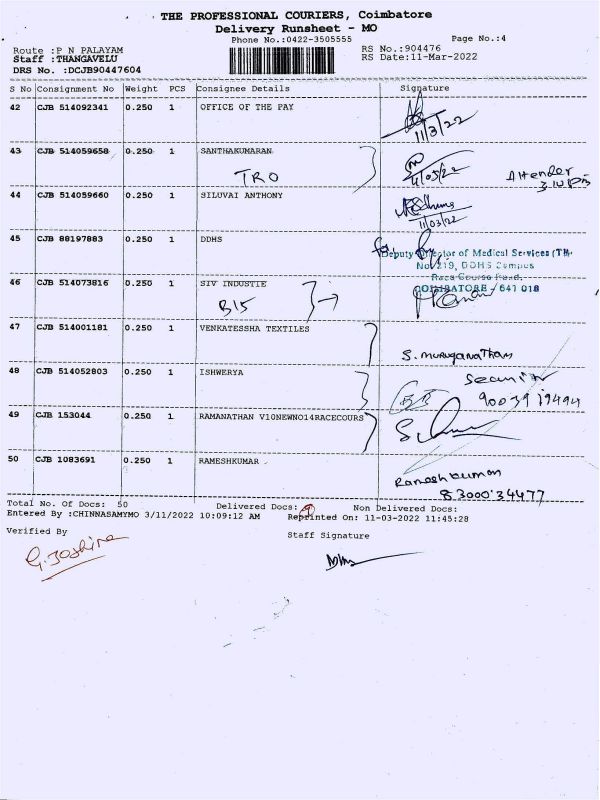 THE PROFESSIONAL COURIERS, Coimbatore
Delivery Runsheet - MO
Phone No.:0422-3505555
Page No.:4
Route :P N PALAYAM
RS No.:904476
Staff :THANGAVELU
RS Date:11-Mar-2022
DRS No. :DCJB90447604
S No Consignment No Weight PCS Consignee Details Signature
42 CJB 514092341 0.250 1 OFFICE OF THE PAY
11/3/22
43 CJB 514059658 0.250 1 SANTHAKUMARAN
TRO
Attender
44 CJB 514059660 0.250 1 SILUVAI ANTHONY
11/03/22
45 CJB 88197883 0.250 1 DDHS
for
Deputy Director of Medical Services (TH
No 219, DDHS Campus
Race Course Road,
46 CJB 514073816 0.250 1 SIV INDUSTIE
COIMBATORE - 641 018
B15
47 CJB 514001181 0.250 1 VENKATESSHA TEXTILES
S. Muruganatham
48 CJB 514052803 0.250 1 ISHWERYA
Security
9003919494
49 CJB 153044 0.250 1 RAMANATHAN V10NEWNO14RACECOURS
50 CJB 1083691 0.250 1 RAMESHKUMAR
Rameshkumar
8300034477
Total No. Of Docs: 50 Delivered Docs: 9 Non Delivered Docs:
Entered By :CHINNASAMYMO 3/11/2022 10:09:12 AM Reprinted On: 11-03-2022 11:45:28
Verified By
Staff Signature
G. Joshina